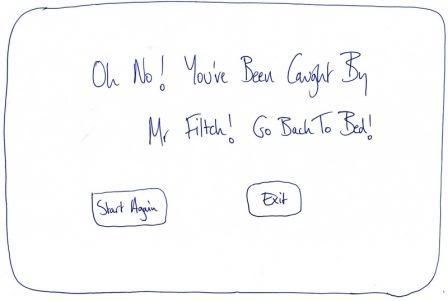 Oh No! You've Been Caught By
Mr Filtch! Go Back To Bed!
Start Again
Exit